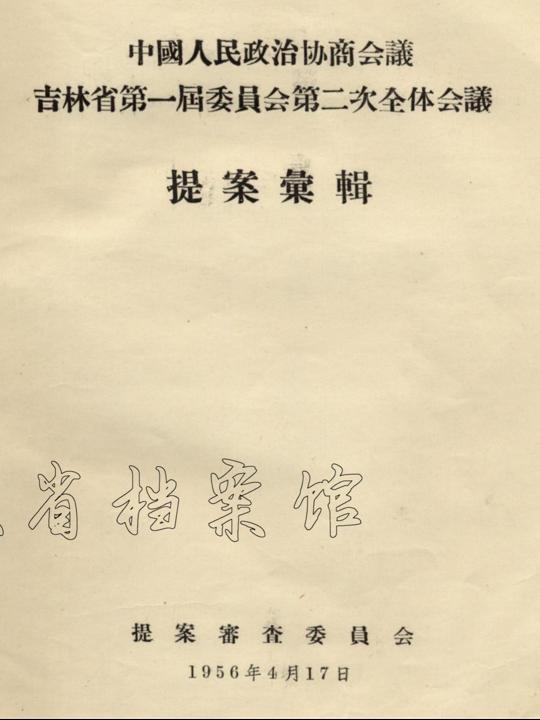 中國人民政治协商会議
吉林省第一屆委員会第二次全体会議
提案彙輯
省档案馆
提案審查委員会
1956年4月17日